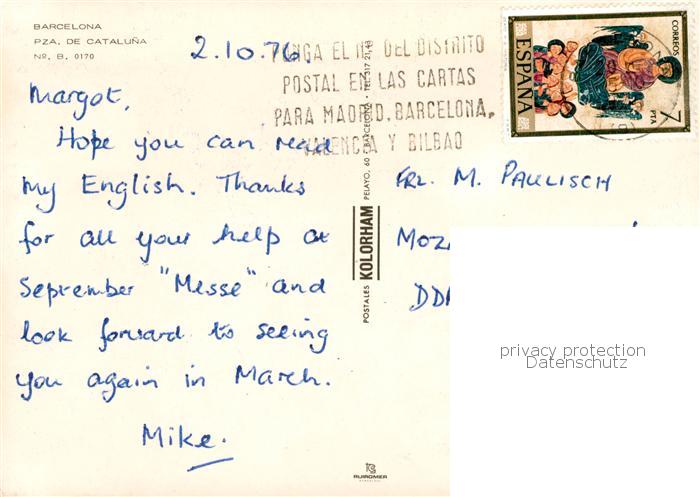 BARCELONA
PZA. DE CATALUÑA
Nº. B. 0170
2.10.76
PONGA EL Nº DEL DISTRITO
POSTAL EN LAS CARTAS
PARA MADRID, BARCELONA,
VALENCIA Y BILBAO
CORREOS
ESPAÑA
7 PTA
Margot,
Hope you can read
my English. Thanks
for all your help at
September "Messe" and
look forward to seeing
you again in March.
Mike.
POSTALES KOLORHAM PELAYO, 60 - BARCELONA - TEL. 317 21 43
FRL. M. PAULISCH
privacy protection
Datenschutz
RUIROMER